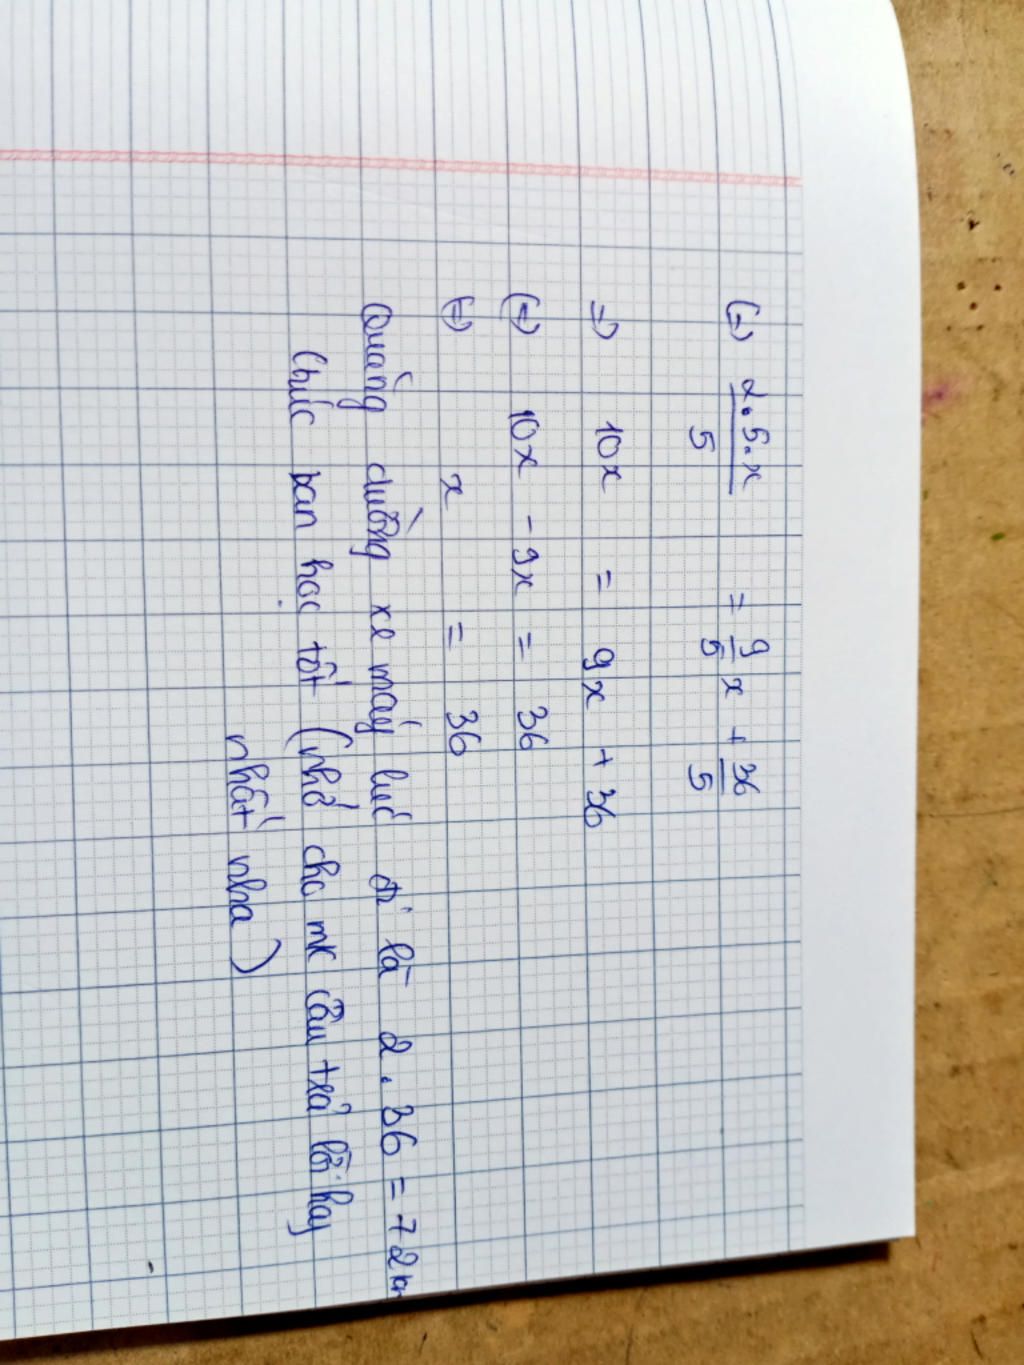 (=) 2.5.x/5 = 9/5 x + 36/5
=) 10x = 9x + 36
(=) 10x - 9x = 36
(=) x = 36
Quãng đường xe máy lúc đi là 2.36 = 72km
Chúc bạn học tốt (nhớ cho mk câu trả lời hay
nhất nha)